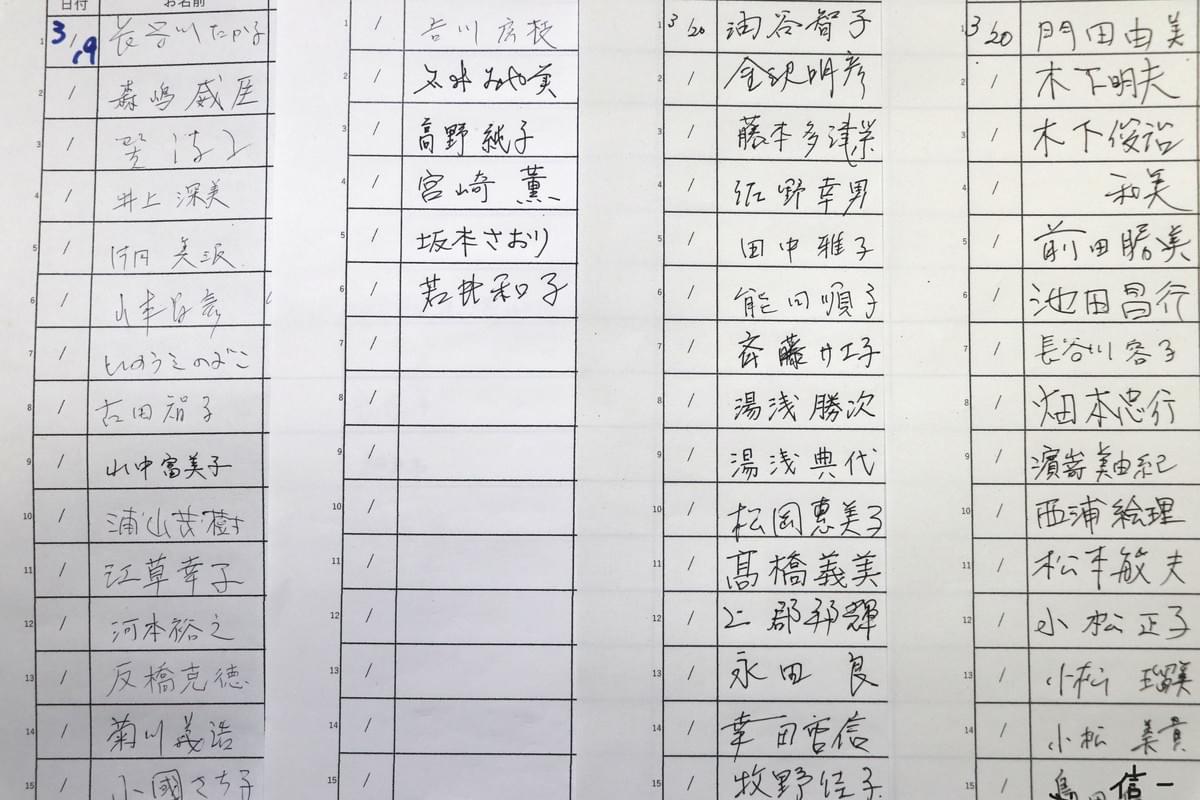 日付 お名前
1 3/19 長谷川たか子
2 / 森嶋威
3 /
4 / 井上深美
5 / 美
6 / 山本
7 /
8 / 古田智子
9 / 山中富美子
10 / 浦山茂樹
11 / 江草幸子
12 / 河本裕之
13 / 反橋克徳
14 / 菊川義浩
15 / 小國さち子
1 / 吉川房枝
2 /
3 / 高野純子
4 / 宮崎薫
5 / 坂本さおり
6 / 若井和子
7 /
8 /
9 /
10 /
11 /
12 /
13 /
14 /
15 /
1 3/20 油谷智子
2 / 金沢明彦
3 / 藤本多津栄
4 / 佐野幸男
5 / 田中雅子
6 / 能田順子
7 / 斉藤サエ子
8 / 湯浅勝次
9 / 湯浅典代
10 / 松岡恵美子
11 / 髙橋義美
12 / 上郡邦輝
13 / 永田良
14 / 幸田信
15 / 牧野佳子
1 3/20 門田由美
2 / 木下明夫
3 / 木下俊治
4 / 和美
5 / 前田晴美
6 / 池田昌行
7 / 長谷川容子
8 / 畑本忠行
9 / 濱嵜美由紀
10 / 西浦絵理
11 / 松本敏夫
12 / 小松正子
13 / 小松瑠美
14 / 小松美貴
15 / 島田信一